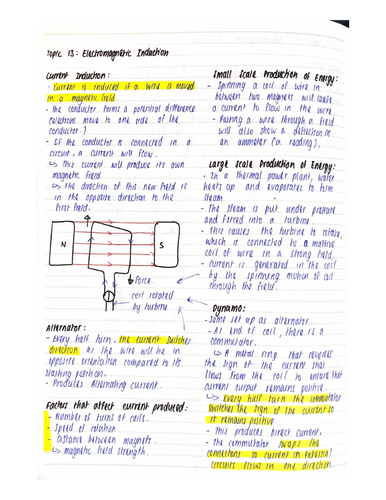 Topic 13: Electromagnetic Induction
Current Induction:
- Current is induced if a wire is moved
in a magnetic field
- The conductor forms a potential difference
(electrons move to one side of the
conductor.)
- If the conductor is connected in a
circuit, a current will flow.
↳ This current will produce its own
magnetic field
↳ The direction of this new field is
in the opposite direction to the
first field.
N
S
Force
coil rotated
by turbine
Alternator:
- Every half turn, the current switches
direction as the wire will be in
opposite orientation compared to its
starting position.
- Produces Alternating current.
Factors that affect current produced:
- Number of turns of coils.
- Speed of rotation.
- Distance between magnets.
↳ magnetic field strength.
Small Scale Production of Energy:
- Spinning a coil of wire in
between two magnets will cause
a current to flow in the wire
- Passing a wire through a field
will also show a deflection on
an ammeter (a reading).
Large Scale Production of Energy:
- In a thermal power plant, water
heats up and evaporates to form
steam
- The steam is put under pressure
and forced into a turbine
- This causes the turbine to rotate,
which is connected to a massive
coil of wire in a strong field.
- Current is generated in the coil
by the spinning motion of coil
through the field.
Dynamo:
- Same set up as alternator.
- At end of coil, there is a
commutator.
↳ A metal ring that reverses
the sign of the current that
flows from the coil to ensure that
current output remains positive.
↳ Every half turn the commutator
switches the sign of the current so
it remains positive
- This produces Direct current.
- The commutator swaps the
connections so current in external
circuits flows in one direction.